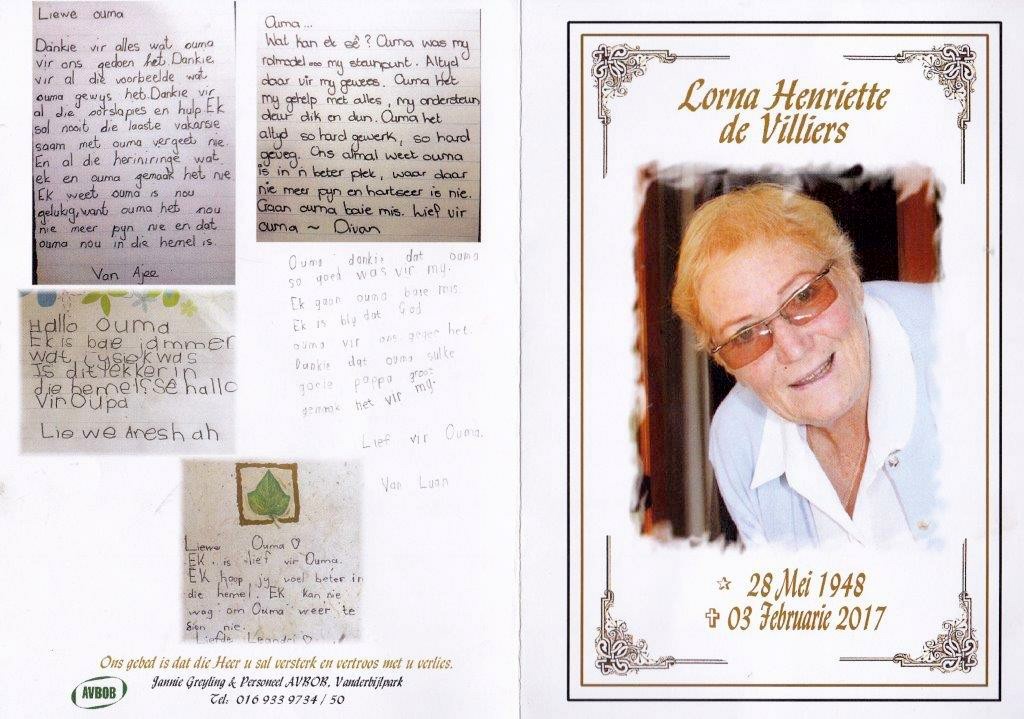 Liewe ouma
Dankie vir alles wat ouma
vir ons gedoen het. Dankie
vir al die voorbeelde wat
ouma gewys het. Dankie vir
al die oorslapies en hulp. Ek
sal nooit die laaste vakansie
saam met ouma vergeet nie.
En al die heriniringe wat
ek en ouma gemaak het nie
Ek weet ouma is nou
gelukig, want ouma het nou
nie meer pyn nie en dat
ouma nou in die hemel is.
Van Ajee
Ouma...
Wat kan ek sê? Ouma was my
rolmodel... my steunpunt. Altyd
daar vir my gewees. Ouma Het
my gehelp met alles, my ondersteun
deur dik en dun. Ouma het
altyd so hard gewerk, so hard
geveg. Ons almal weet ouma
is in 'n beter plek, waar daar
nie meer pyn en hartseer is nie.
Gaan ouma baie mis. Lief vir
ouma ~ Divan
Ouma dankie dat ouma
so goed was vir my.
Ek gaan ouma baie mis.
Ek is bly dat God
ouma vir ons gegee het.
Dankie dat ouma sulke
goeie pappa groot
gemaak het vir my.
Lief vir Ouma.
Van Luan
Hallo Ouma
Ek is bae jammer
wat jy siek was
Is dit lekker in
die hemel? Sê hallo
Vir Oupa
Liewe Aneshah
Liewe Ouma ♡
EK is lief vir Ouma.
EK hoop jy voel beter in
die hemel. EK kan nie
wag om Ouma weer te
sien nie.
Liefde Leandri ♡
Ons gebed is dat die Heer u sal versterk en vertroos met u verlies.
Jannie Greyling & Personeel AVBOB, Vanderbijlpark
Tel: 016 933 9734 / 50
AVBOB
Lorna Henriette
de Villiers
28 Mei 1948
03 Februarie 2017